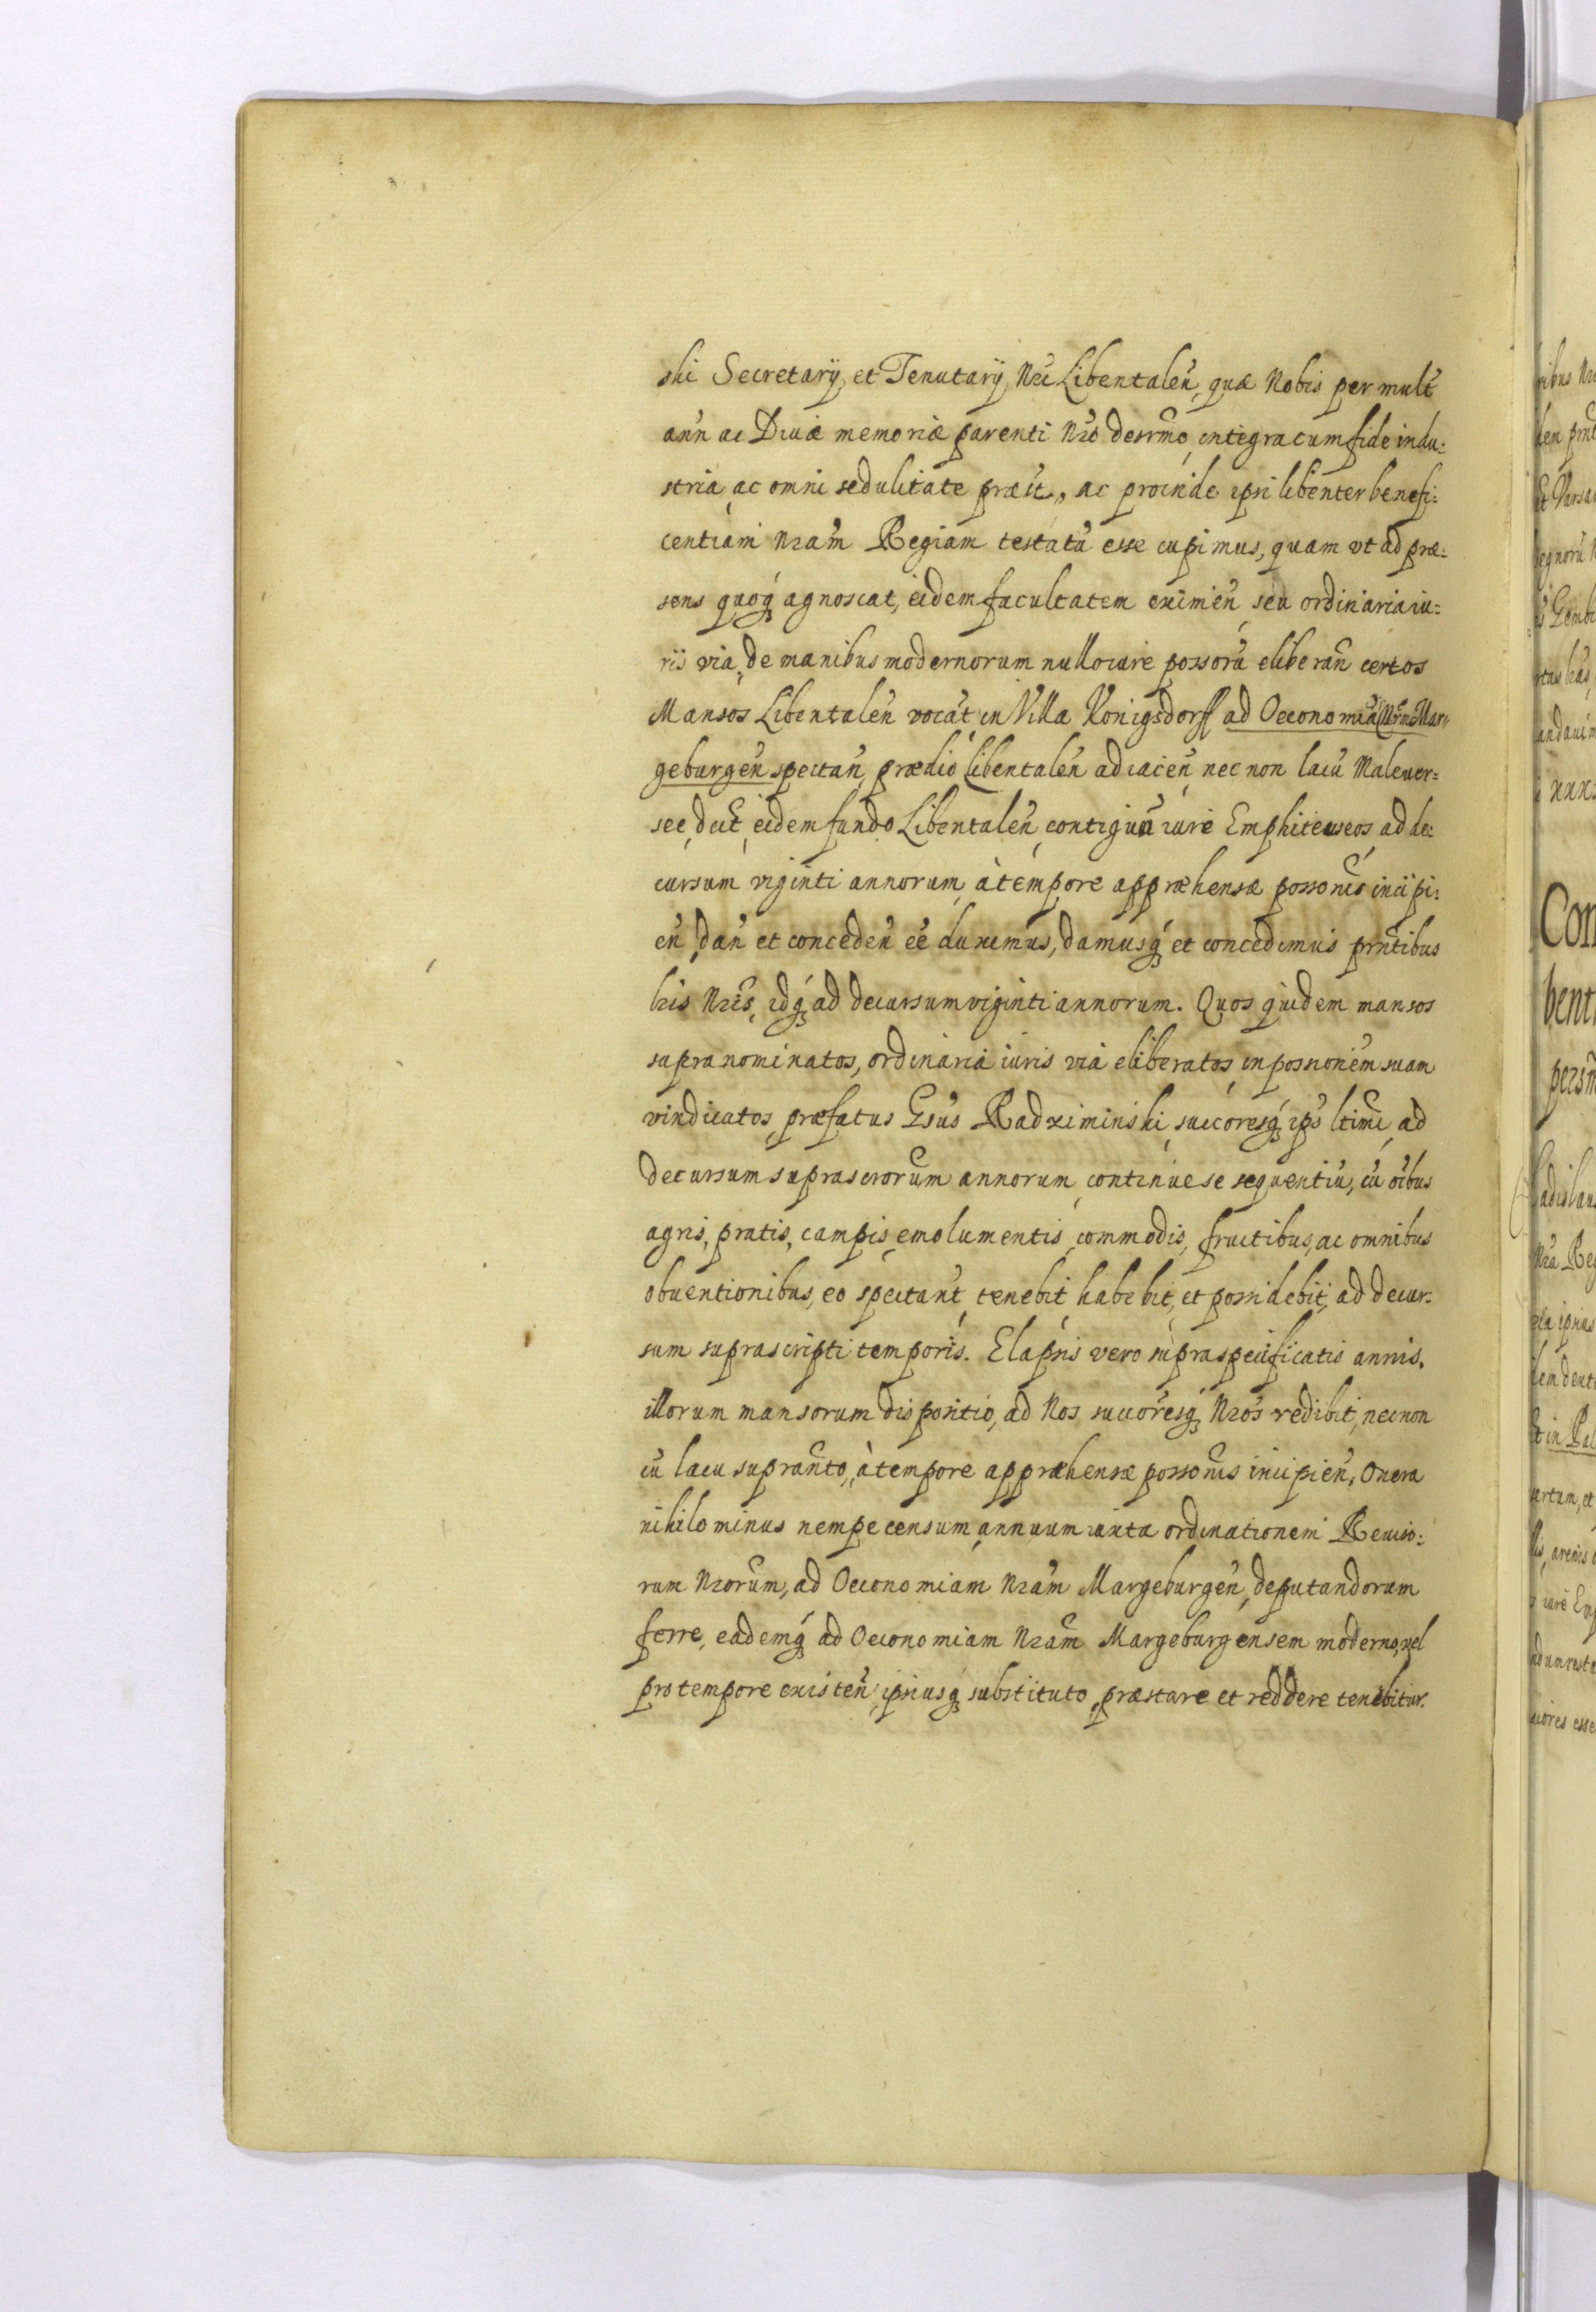 ski Secretarÿ et Tenutarÿ Nri Libentalen, quæ Nobis per mult
ann ac Diuæ memoriæ parenti Nro desrmo, integra cum fide indu:
stria ac omni sedulitate præst, ac proinde ipsi libenter benefi:
centiam Nram Regiam testatã esse cupimus, quam vt ad præ:
sens quoq agnoscat, eidem facultatem eximien seu ordinaria iu:
ris via, de manibus modernorum nullo iure possorũ eliberan certos
Mansos Libentalen vocat in Villa Konigsdorff ad Oeconomiam Mar
geburgen spectan, prædio Libentalen adiacen, nec non lacũ Maleuer:
see dict, eidem fundo Libentalen contiguũ iure Emphiteuseos, ad de:
cursum viginti annorum, à tempore appræhensæ possonis incipi:
en, dan et conceden eẽ duximus, damusq et concedimus prntibus
lris Nris, idq ad decursum viginti annorum. Quos quidem mansos
supranominatos, ordinaria iuris via eliberatos, in possnonem suam
vindicatos, præfatus Gsus Radziminski, succoresq ips ltimi, ad
decursum suprascrorum annorum, continue se sequentiũ, cũ oibus
agris, pratis, campis, emolumentis, commodis, fructibus, ac omnibus
obuentionibus, eo spectant, tenebit, habebit, et possidebit, ad decur:
sum suprascripti temporis. Elapsis vero supraspecificatis annis,
illorum mansorum dispositio, ad Nos, succoresq Nros redibit, necnon
cũ lacu supranto, à tempore appræhensæ possonis incipien, Onera
nihilominus nempe censum, annuum iuxta ordinationem Reuiso:
rum Nrorum, ad Oeconomiam Nram Margeburgen, deputandorum
ferre, eademq ad Oeconomiam Nram Margeburgensem moderno, vel
pro tempore existen, ipsiusq substituto, præstare et reddere tenebitur.